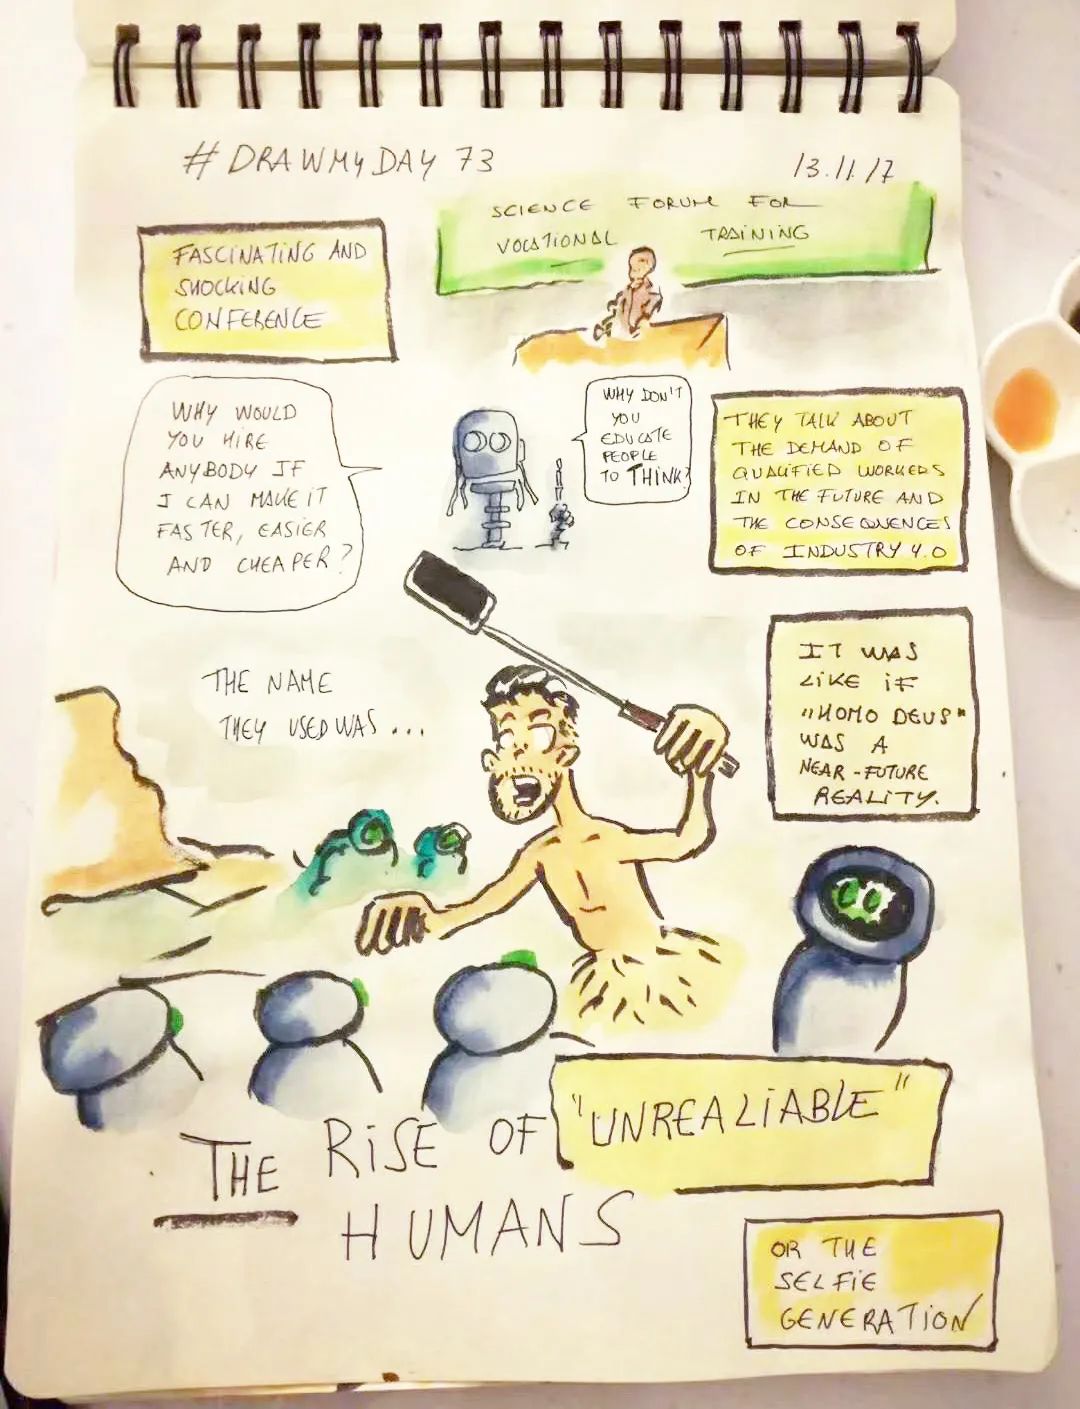 # DRAWMYDAY 73
13.11.17
SCIENCE FORUM FOR
VOCATIONAL TRAINING
FASCINATING AND
SHOCKING
CONFERENCE
WHY WOULD
YOU HIRE
ANYBODY IF
I CAN MAKE IT
FASTER, EASIER
AND CHEAPER?
WHY DON'T
YOU
EDUCATE
PEOPLE
TO THINK?
THEY TALK ABOUT
THE DEMAND OF
QUALIFIED WORKERS
IN THE FUTURE AND
THE CONSEQUENCES
OF INDUSTRY 4.0
IT WAS
LIKE IF
"HOMO DEUS"
WAS A
NEAR-FUTURE
REALITY.
THE NAME
THEY USED WAS...
THE RISE OF "UNREALIABLE"
HUMANS
OR THE
SELFIE
GENERATION